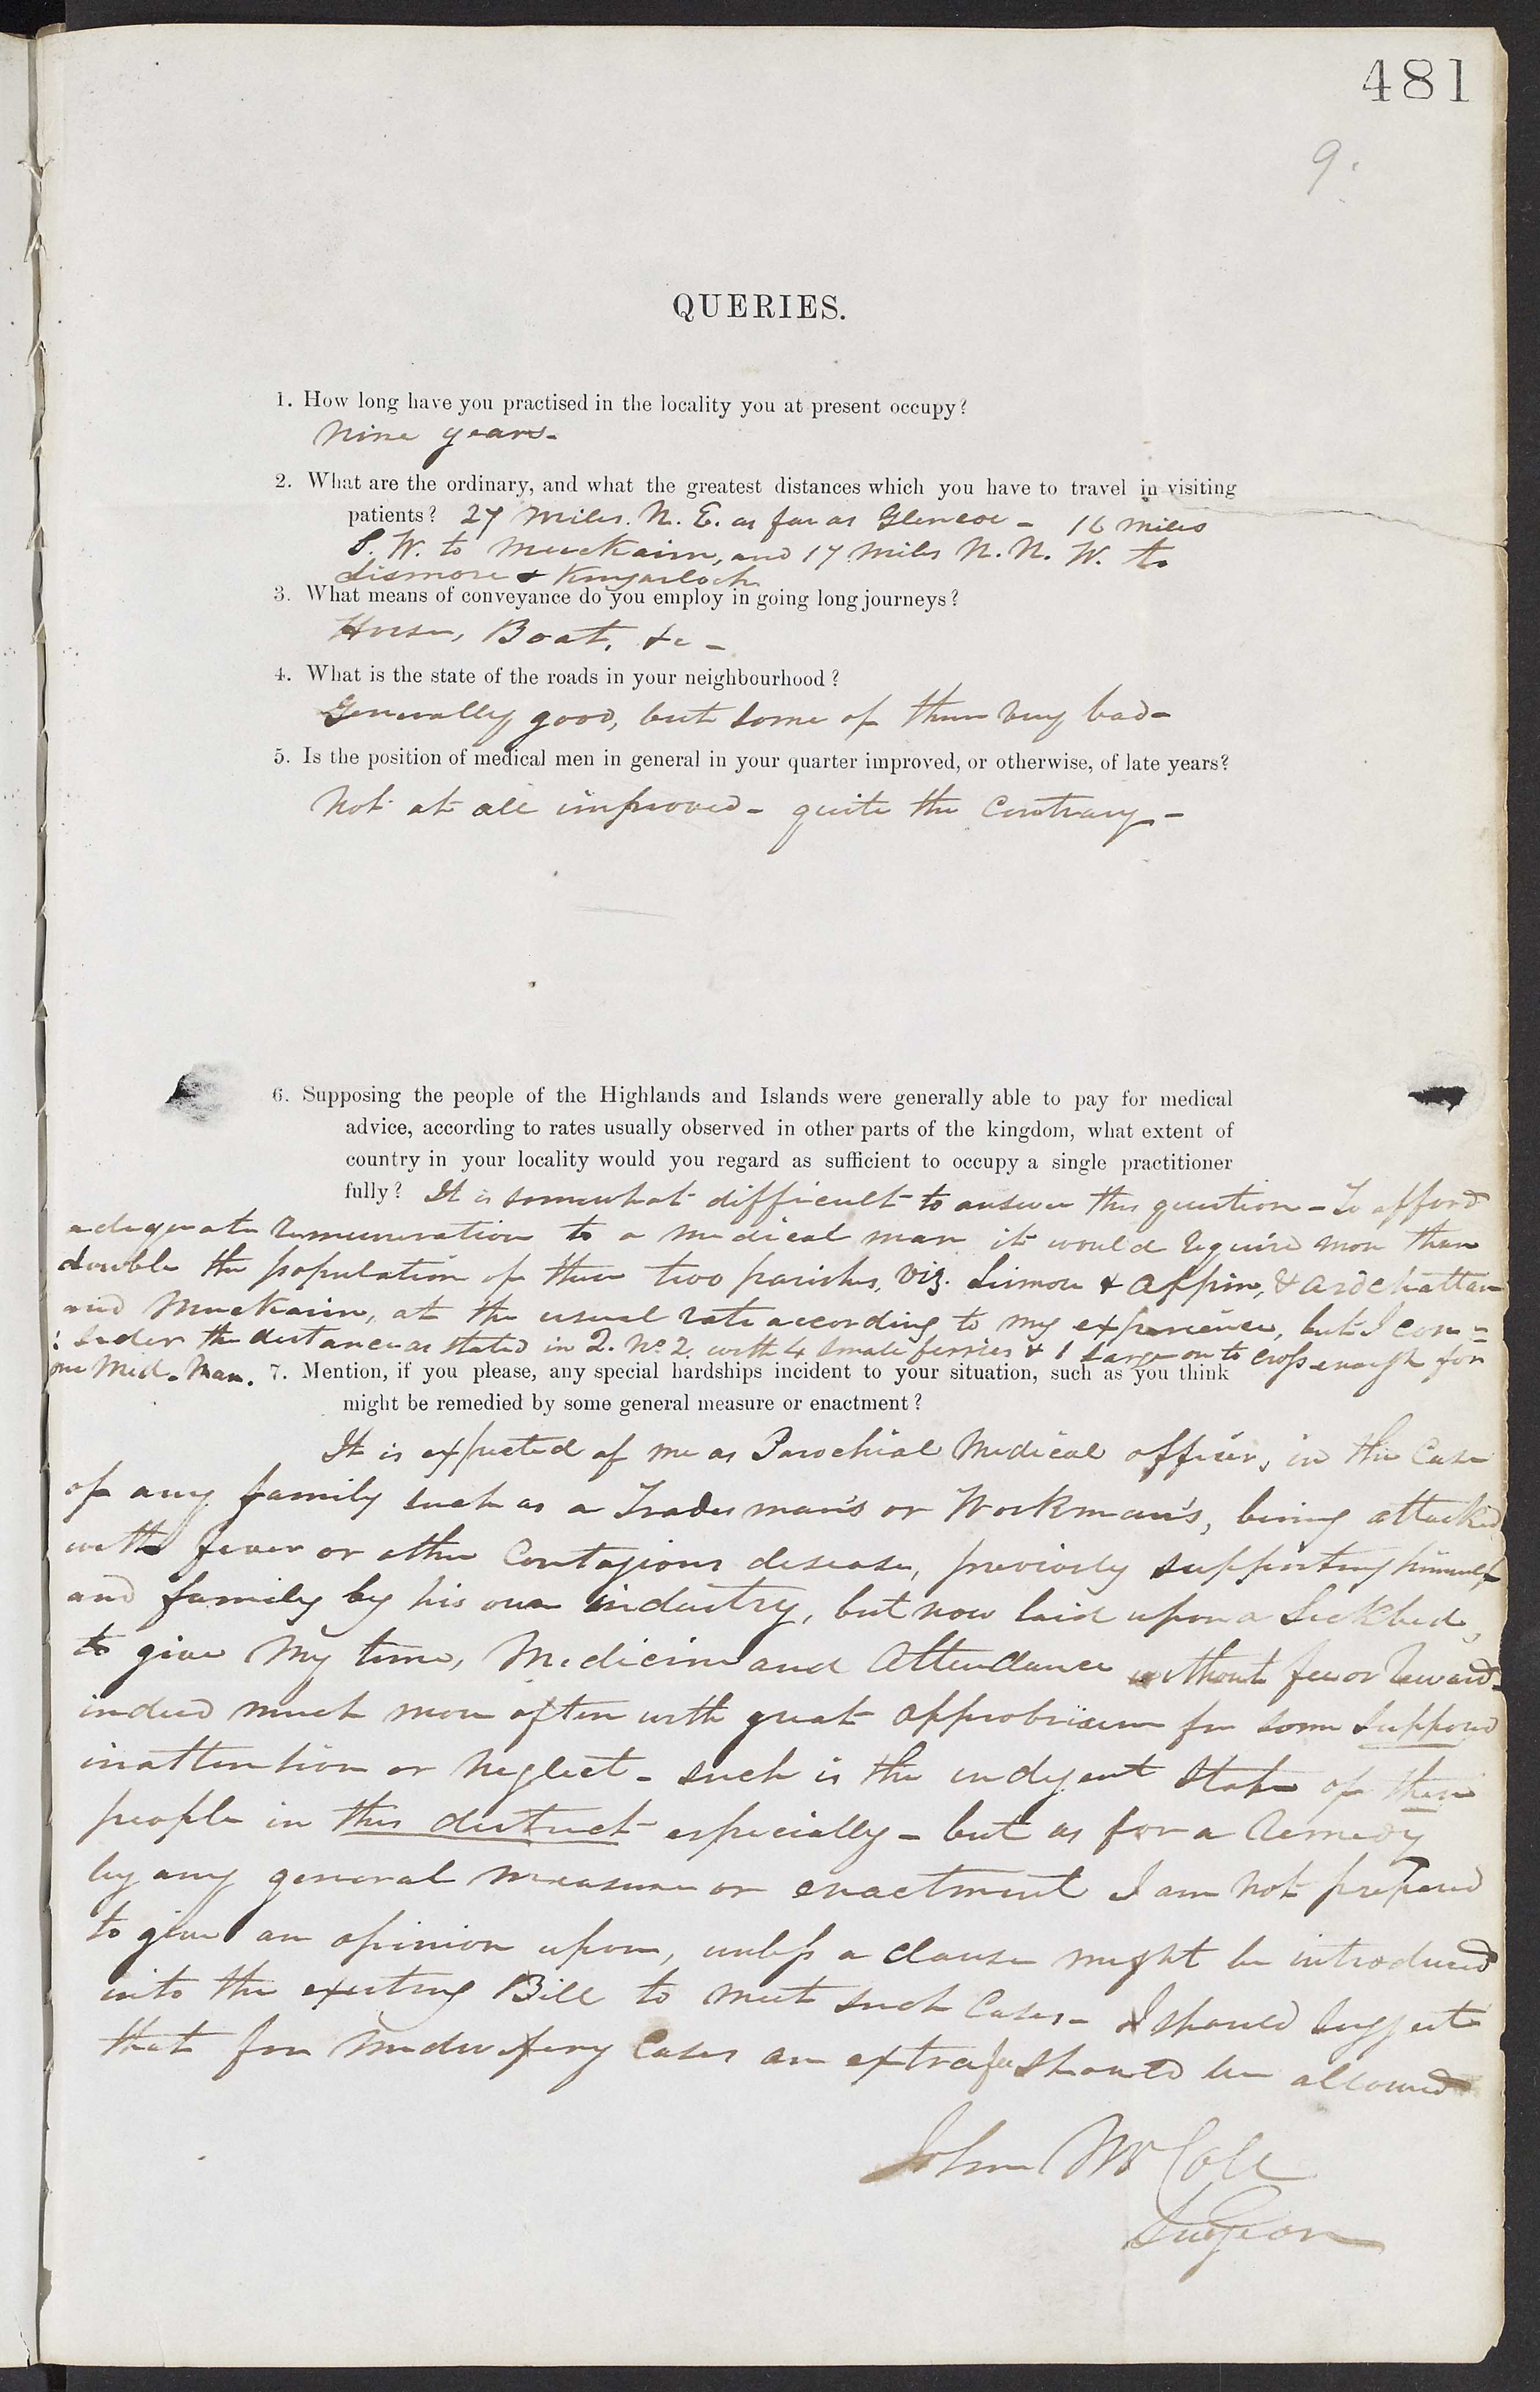 481
9.
QUERIES.
1. How long have you practised in the locality you at present occupy?
Nine years -
2. What are the ordinary, and what the greatest distances which you have to travel in visiting
patients? 27 miles. N. E. as far as Glencoe - 16 miles
S. W. to Muckairn, and 17 miles N. N. W. to
Lismore & Kingairloch
3. What means of conveyance do you employ in going long journeys?
Horse, Boat, &c -
4. What is the state of the roads in your neighbourhood?
Generally good, but some of them very bad -
5. Is the position of medical men in general in your quarter improved, or otherwise, of late years?
Not at all improved - quite the Contrary -
6. Supposing the people of the Highlands and Islands were generally able to pay for medical
advice, according to rates usually observed in other parts of the kingdom, what extent of
country in your locality would you regard as sufficient to occupy a single practitioner
fully? It is somewhat difficult to answer this question - To afford
adequate remuneration to a medical man it would require more than
double the population of these two parishes, viz. Lismore & Appin, & Ardchattan
and Muckairn, at the usual rate according to my experience, but I con=
:sider the distance as stated in 2. No 2. with 4 small ferries & 1 large on to cross enough for
one Med. Man.
7. Mention, if you please, any special hardships incident to your situation, such as you think
might be remedied by some general measure or enactment?
It is expected of me as Parochial Medical officer, in the Case
of any family such as a Tradesman's or Workman's, being attacked
with fever or other Contagious disease, previously supporting himself
and family by his own industry, but now laid upon a Sickbed,
to give My time, Medicine and Attendance without fee or Reward -
indeed much more often with great opprobrium for some supposed
inattention or Neglect - such is the indigent State of these
people in this district especially - but as for a Remedy
by any general measure or enactment I am not prepared
to give an opinion upon, unless a clause might be introduced
into the existing Bill to meet such Cases - I should suggest
that for Midwifery Cases an extra fee should be allowed
John McColl
Surgeon